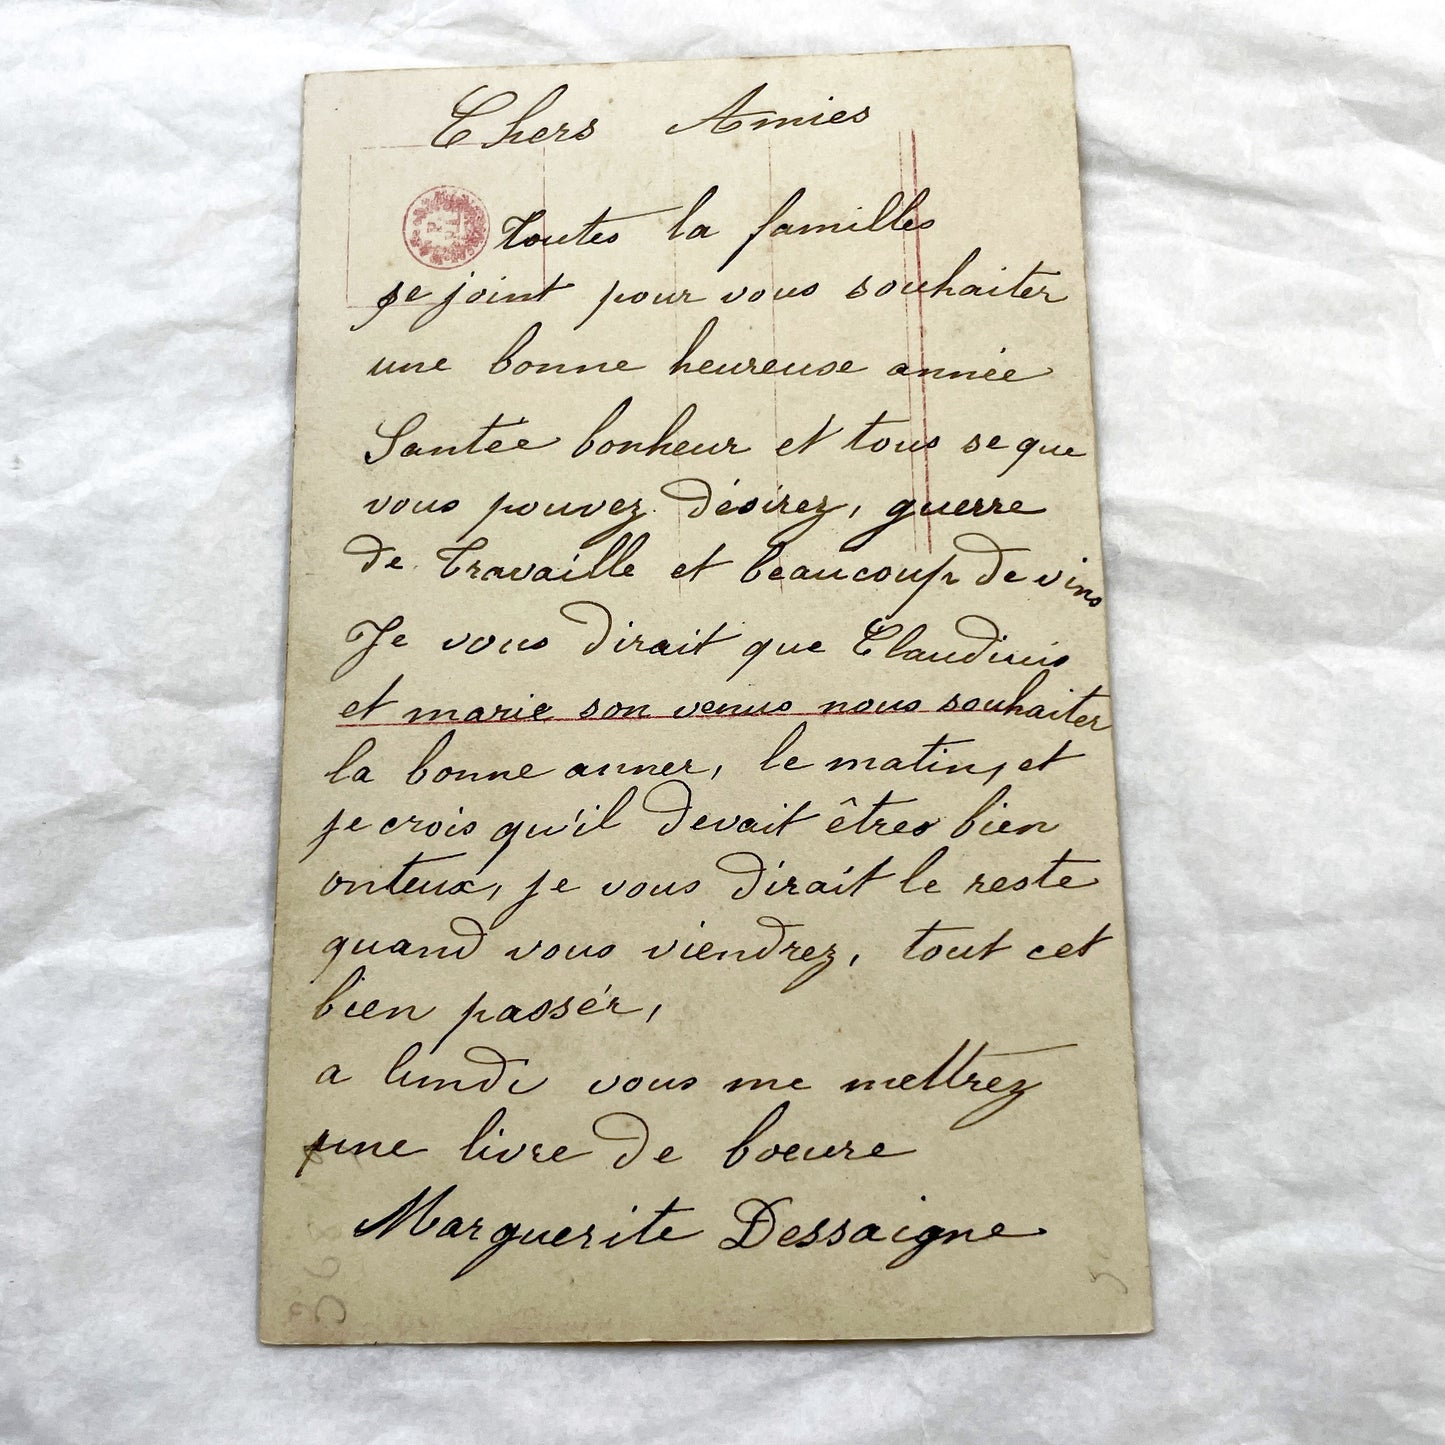 Chers Amies
Toutes la familles
se joint pour vous souhaiter
une bonne heureuse année
Santée bonheur et tous se que
vous pouvez désirez, guerre
de travaille et beaucoup de vins
Je vous dirait que Claudiuis
et marie son venus nous souhaiter
la bonne anner, le matin, et
je crois qu'il devait êtres bien
onteux, je vous dirait le reste
quand vous viendrez, tout cet
bien passér,
a lundi vous me mettrez
une livre de boeure
Marguerite Dessaigne